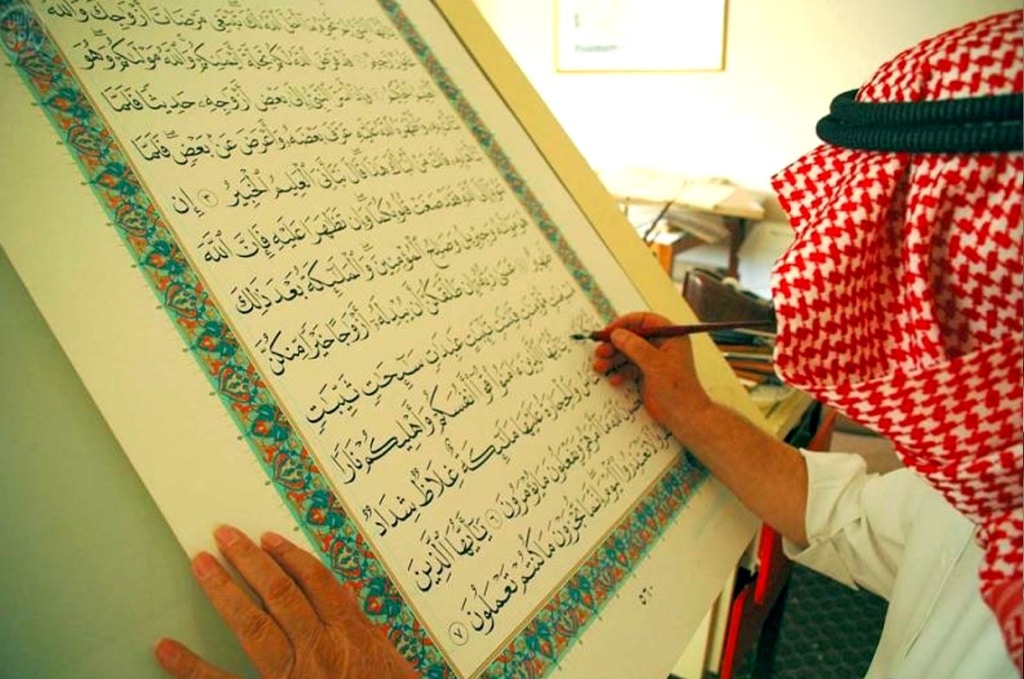 لَكَ تَبْتَغِى مَرْضَاتَ أَزْوَٰجِكَ وَٱللَّهُ
رَّحِيمٌ قَدْ فَرَضَ ٱللَّهُ لَكُمْ تَحِلَّةَ أَيْمَٰنِكُمْ وَٱللَّهُ مَوْلَىٰكُمْ وَهُوَ
ٱلْعَلِيمُ ٱلْحَكِيمُ وَإِذْ أَسَرَّ ٱلنَّبِىُّ إِلَىٰ بَعْضِ أَزْوَٰجِهِۦ حَدِيثًا فَلَمَّا
نَبَّأَتْ بِهِۦ وَأَظْهَرَهُ ٱللَّهُ عَلَيْهِ عَرَّفَ بَعْضَهُۥ وَأَعْرَضَ عَنۢ بَعْضٍ فَلَمَّا
قَالَتْ مَنْ أَنۢبَأَكَ هَٰذَا قَالَ نَبَّأَنِىَ ٱلْعَلِيمُ ٱلْخَبِيرُ ٣ إِن
إِلَى ٱللَّهِ فَقَدْ صَغَتْ قُلُوبُكُمَا وَإِن تَظَٰهَرَا عَلَيْهِ فَإِنَّ ٱللَّهَ
هُوَ مَوْلَىٰهُ وَجِبْرِيلُ وَصَٰلِحُ ٱلْمُؤْمِنِينَ وَٱلْمَلَٰٓئِكَةُ بَعْدَ ذَٰلِكَ
ظَهِيرٌ عَسَىٰ رَبُّهُۥٓ إِن طَلَّقَكُنَّ أَن يُبْدِلَهُۥٓ أَزْوَٰجًا خَيْرًا مِّنكُنَّ
مُّؤْمِنَٰتٍ قَٰنِتَٰتٍ تَٰٓئِبَٰتٍ عَٰبِدَٰتٍ سَٰٓئِحَٰتٍ ثَيِّبَٰتٍ
يَٰٓأَيُّهَا ٱلَّذِينَ ءَامَنُوا۟ قُوٓا۟ أَنفُسَكُمْ وَأَهْلِيكُمْ نَارًا
وَٱلْحِجَارَةُ عَلَيْهَا مَلَٰٓئِكَةٌ غِلَاظٌ شِدَادٌ
ٱللَّهَ مَآ أَمَرَهُمْ وَيَفْعَلُونَ مَا يُؤْمَرُونَ ٦ يَٰٓأَيُّهَا ٱلَّذِينَ
لَا تَعْتَذِرُوا۟ ٱلْيَوْمَ إِنَّمَا تُجْزَوْنَ مَا كُنتُمْ تَعْمَلُونَ ٧